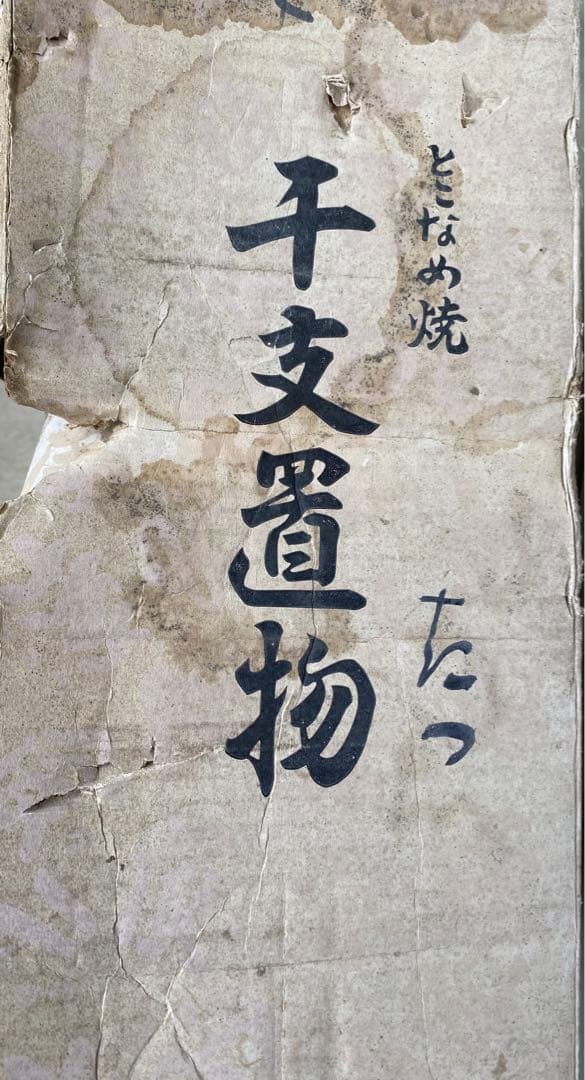 とこなめ焼
たつ
干支置物